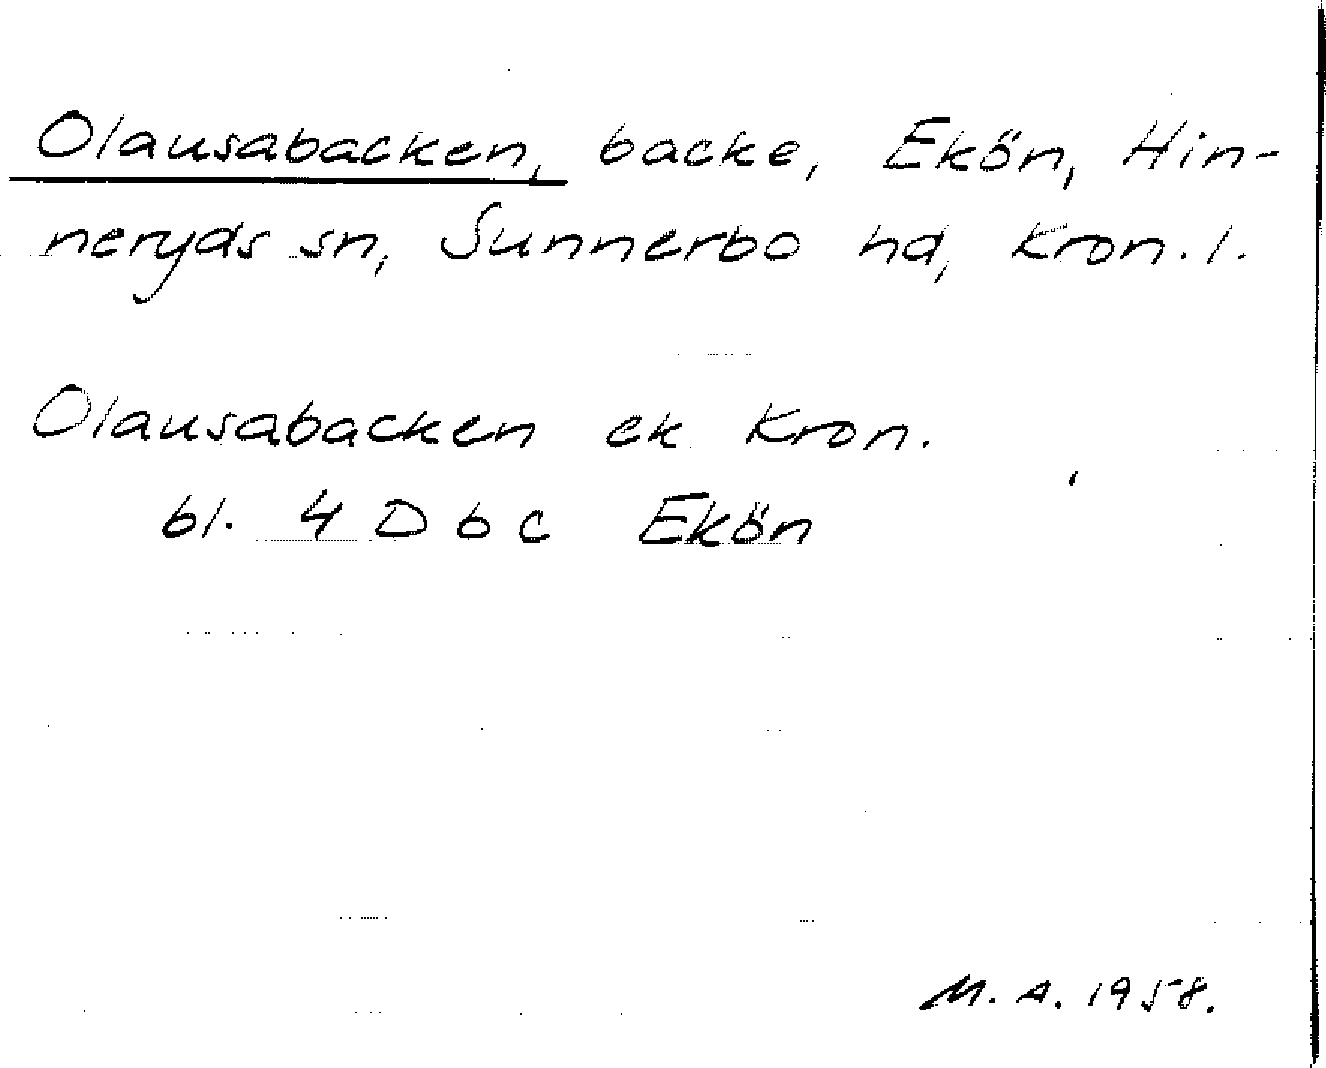 Olausabacken, backe, Ekön, Hin-
neryds sn, Sunnerbo hd, Kron. l.
Olausabacken ek Kron.
bl. 4 D b c Ekön
M. A. 1958.